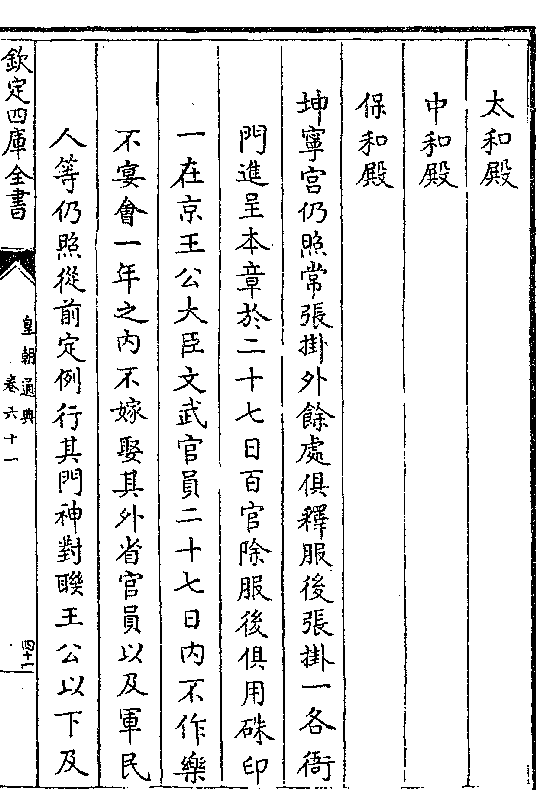 太和殿
中和殿
保和殿
坤寧宫仍照常張掛外餘處俱釋服後張掛一各衙
門進呈本章於二十七日百官除服後俱用硃印
一在京王公大臣文武官員二十七日内不作樂
不宴會一年之内不嫁娶其外省官員以及軍民
人等仍照從前定例行其門神對聨王公以下及
欽定四庫全書
皇朝通典
卷六十一
四十一